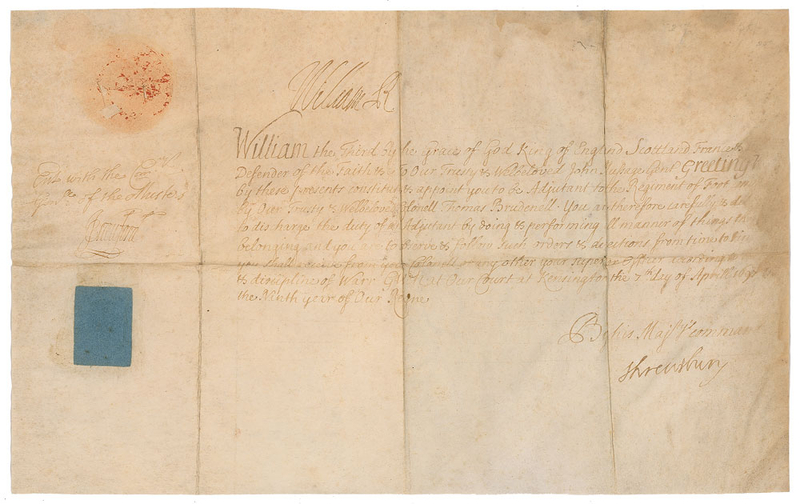 William R
William the Third by the Grace of God King of England, Scotland, France &
Defender of the Faith &c To Our Trusty & Welbeloved John Gent Greeting
by these presents constitute & appoint you to be Adjutant to the Regiment of Foot
by Our Trusty & Welbeloved Colonell Thomas Brudenell. You are therefore carefully &
to discharge the duty of Adjutant by doing & performing all manner of things
belonging and you are to observe & follow such orders & directions from time to
you shall receive from your Colonell or any other your superior Officer according
& discipline of Warr. Given at Our Court at Kensington the 7th day of Aprill
the Ninth year of Our Reigne
Entd with the
of the Musters
By his Majts Command
Shrewsbury